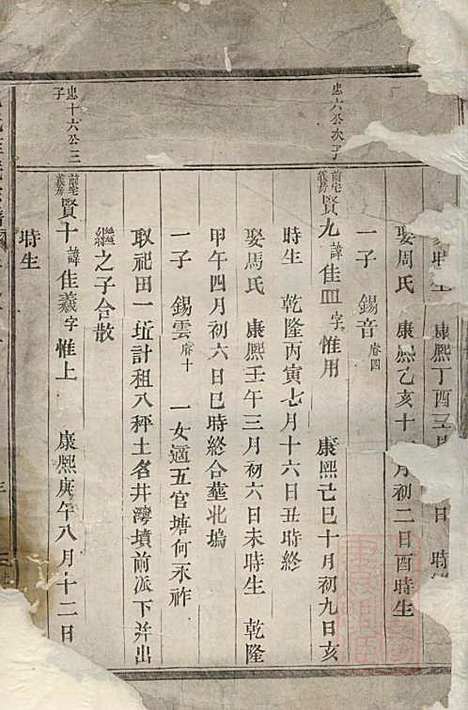 時生 康熙丁酉三 日 時
娶周氏 康熙乙亥十 月初二日酉時生
一子 錫音 卷四
忠六公次子
前宅義房 賢九 諱佳皿 字惟用 康熙己巳十月初九日亥
時生 乾隆丙寅七月十六日丑時終
娶周氏 康熙壬午三月初六日未時生 乾隆
甲午四月初六日巳時終合塟北塢
一子 錫雲 府十 一女適五官塘何永祚
取祀田一坵計租八秤土名井灣墳前派下并出
繼之子合散
忠十六公三子
前宅義房 賢十 諱佳羲 字惟上 康熙庚午八月十二日
時生